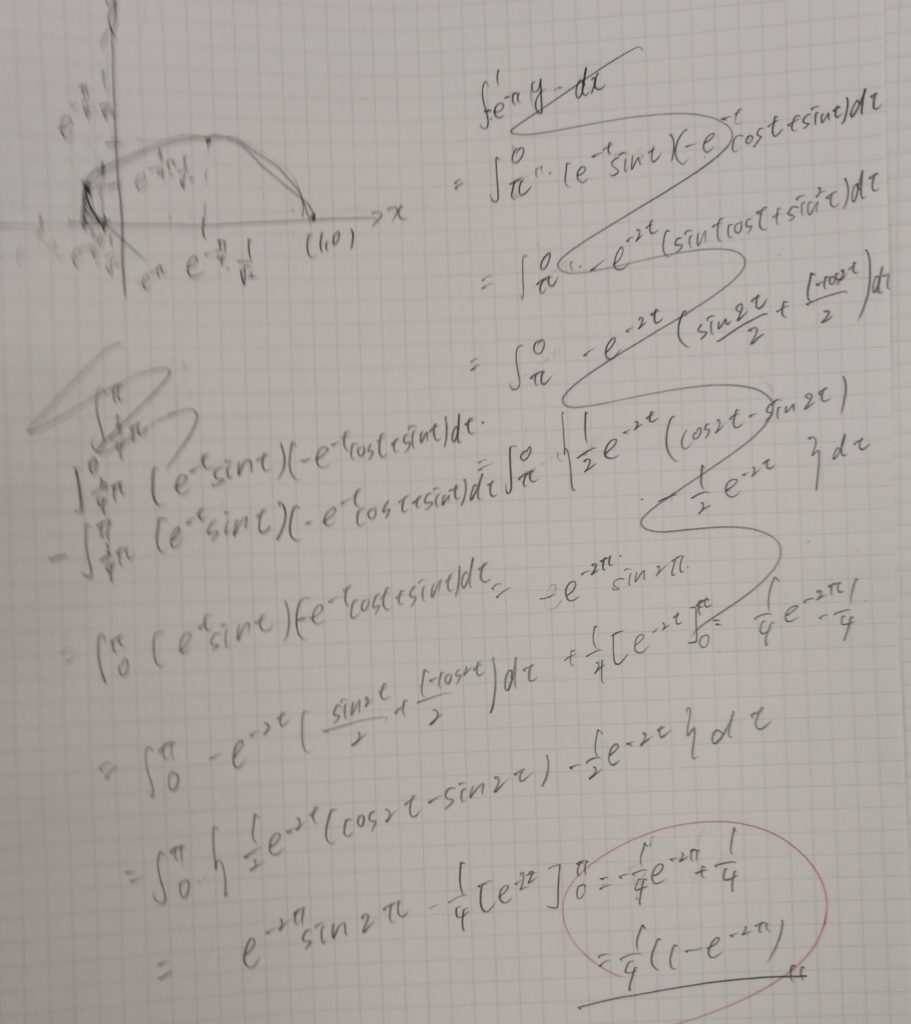 x
(1,0)
e^{-\frac{\pi}{4}} \frac{1}{\sqrt{2}}
∫_{e^{-π}}^{1} y dx
= ∫_π^0 (e^{-t} sin t)(-e^{-t} cos t + sin t) dt
= ∫_π^0 - e^{-2t} (sin t cos t + sin²t) dt
= ∫_π^0 - e^{-2t} (\frac{sin 2t}{2} + \frac{1-cos 2t}{2}) dt
= ∫_π^0 { \frac{1}{2} e^{-2t} (cos 2t - sin 2t)
- \frac{1}{2} e^{-2t} } dt
= - e^{-2π} sin 2π
+ \frac{1}{4} [e^{-2t}]_0^π = \frac{1}{4} e^{-2π} - \frac{1}{4}
∫_{\frac{3}{4}π}^{0} (e^{-t} sin t)(-e^{-t} cos t + sin t) dt
- ∫_{\frac{3}{4}π}^{π} (e^{-t} sin t)(-e^{-t} cos t + sin t) dt
= ∫_0^π (e^{-t} sin t)(-e^{-t} cos t + sin t) dt
= ∫_0^π - e^{-2t} (\frac{sin 2t}{2} + \frac{1-cos 2t}{2}) dt
= ∫_0^π { \frac{1}{2} e^{-2t} (cos 2t - sin 2t) - \frac{1}{2} e^{-2t} } dt
= e^{-2π} sin 2π - \frac{1}{4} [e^{-2t}]_0^π = -\frac{1}{4} e^{-2π} + \frac{1}{4}
= \frac{1}{4} (1 - e^{-2π})